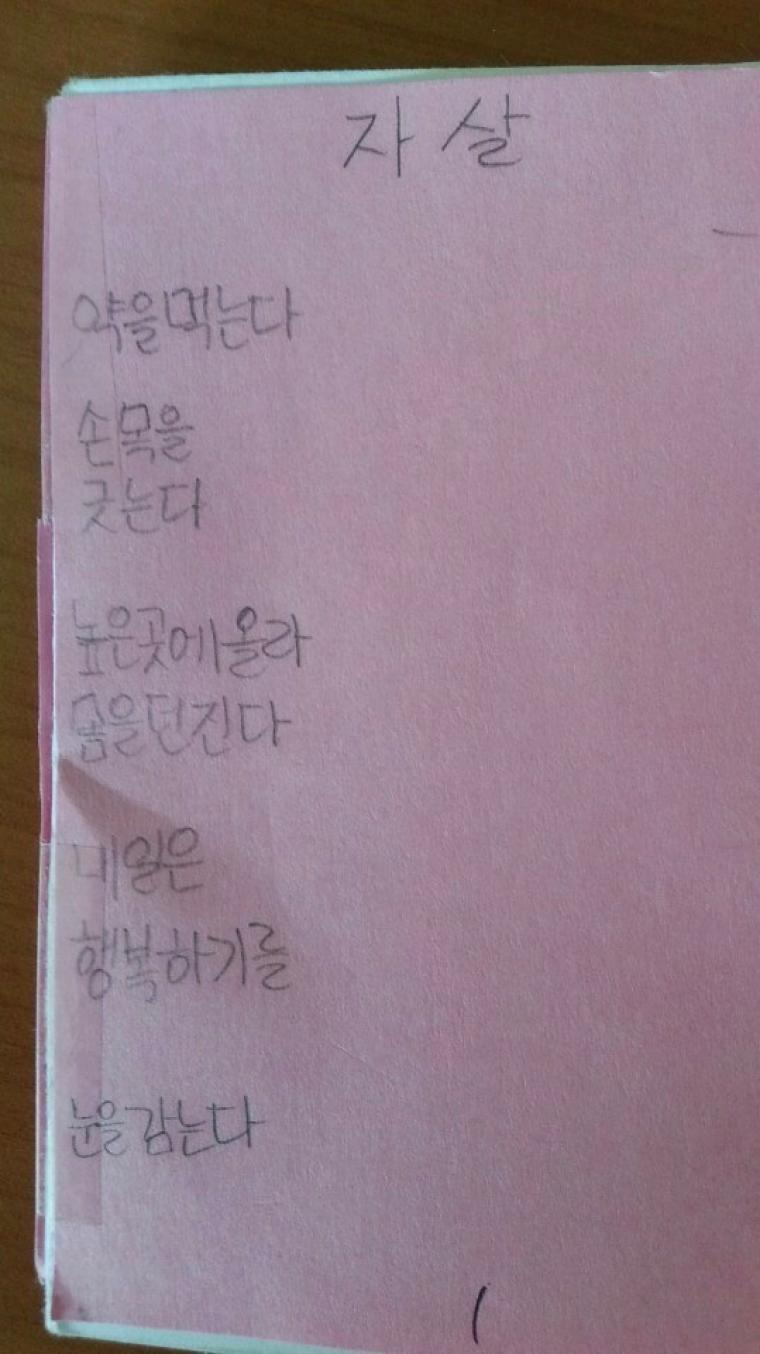 자살
약을먹는다
손목을
긋는다
높은곳에올라
몸을던진다
내일은
행복하기를
눈을감는다